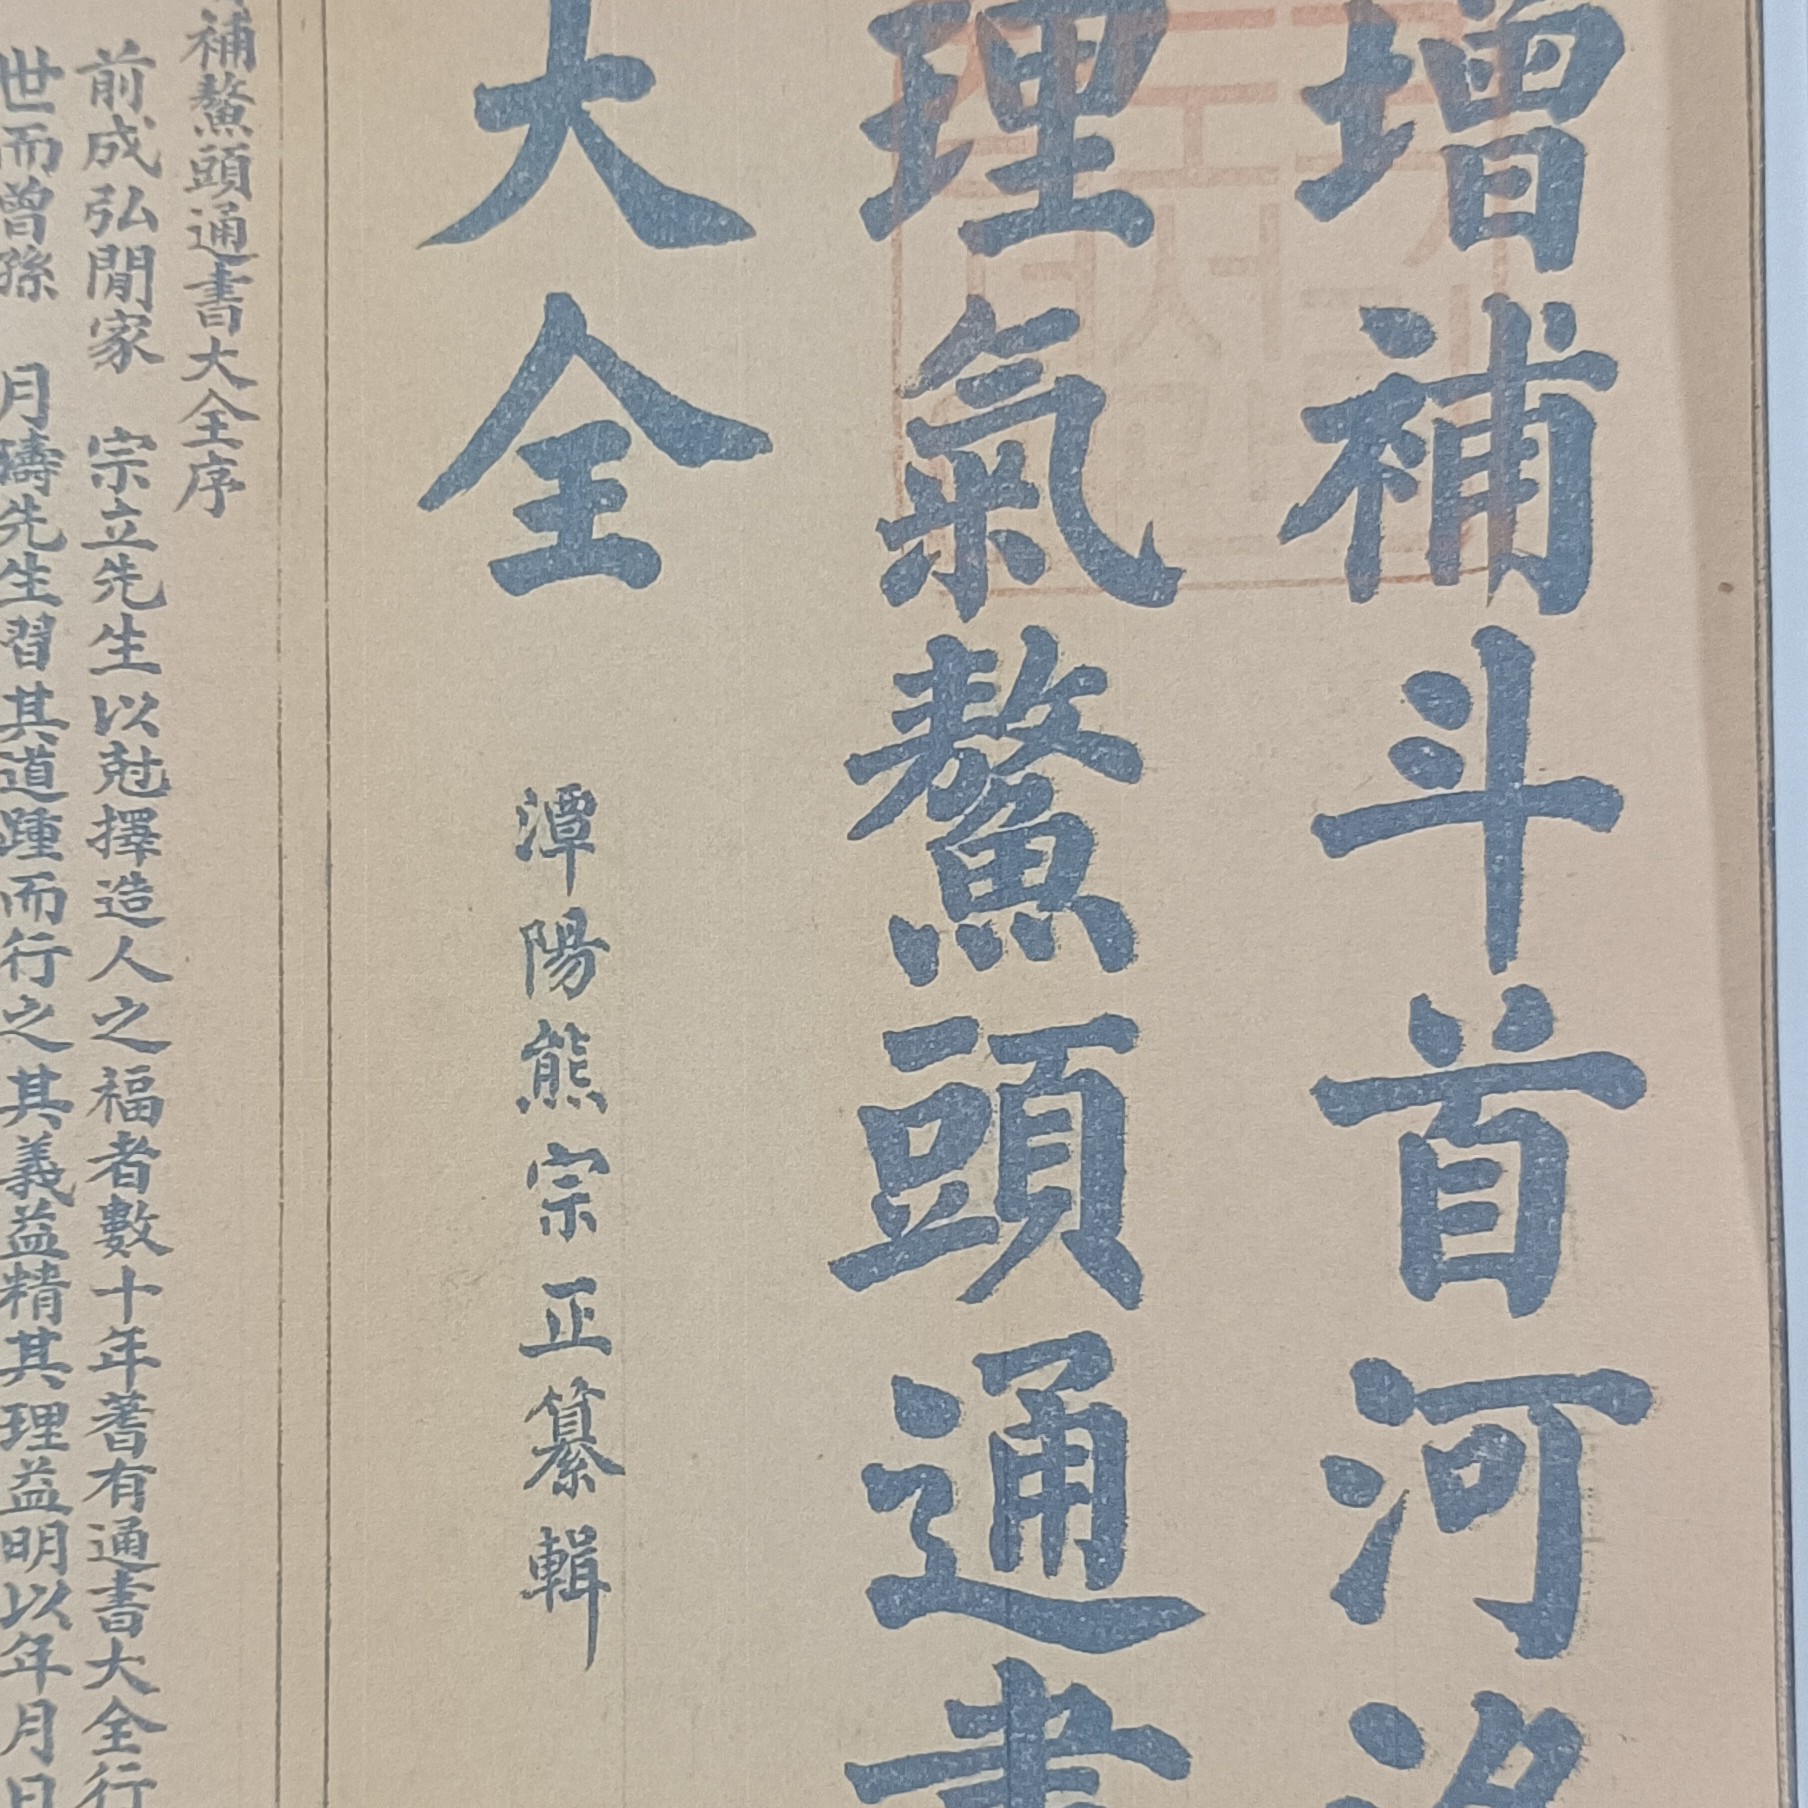 增補斗首河洛
理氣鰲頭通書
大全
潭陽熊宗正纂輯
補鰲頭通書大全序
前成弘閒家 宗立先生以尅擇造人之福者數十年著有通書大全行
世而曾孫 月疇先生習其道踵而行之其義益精其理益明以年月日